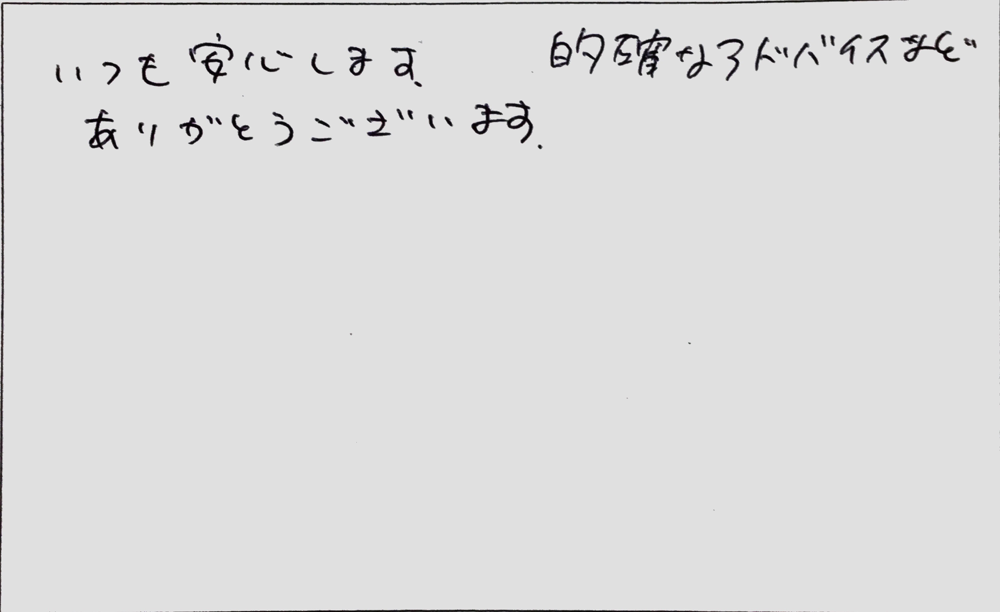 いつも安心します. 的確なアドバイスなど
ありがとうございます.